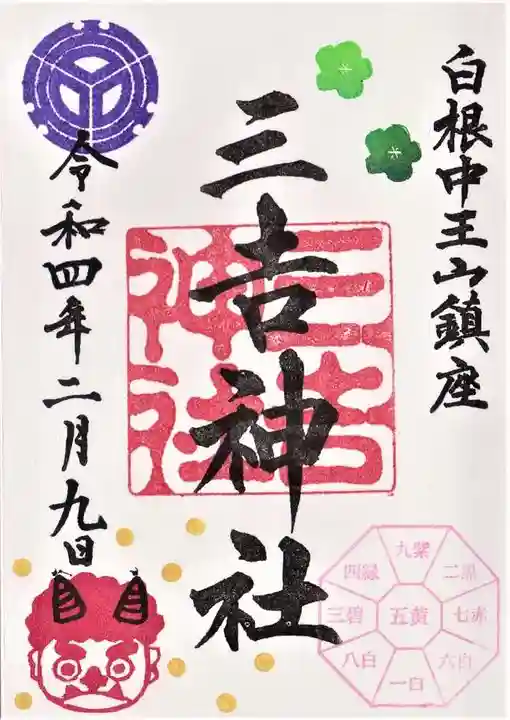 白根中王山鎮座
三吉神社
三吉
神社
令和四年二月九日
九紫
二黒
七赤
六白
一白
八白
三碧
四緑
五黄